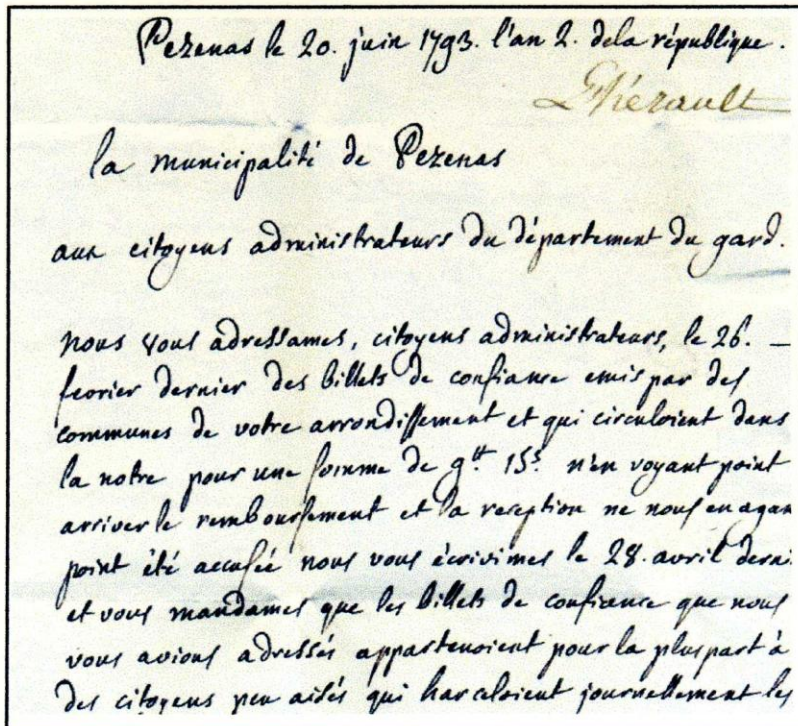 Pezenas le 20. juin 1793. l'an 2. dela république.
L'hérault
la municipalité de Pezenas
aux citoyens administrateurs du département du gard.
nous vous adressames, citoyens administrateurs, le 26. —
fevrier dernier des billets de confiance emis par des
communes de votre arrondissement et qui circuloient dans
la notre pour une somme de 9tt 15s. n'en voyant point
arriver le remboursement et la reception ne nous en ayan
point été accusée nous vous écrivimes le 28. avril derni
et vous mandames que les billets de confiance que nous
vous avions adressés appartenoient pour la pluspart à
des citoyens peu aisés qui harceloient journellement les